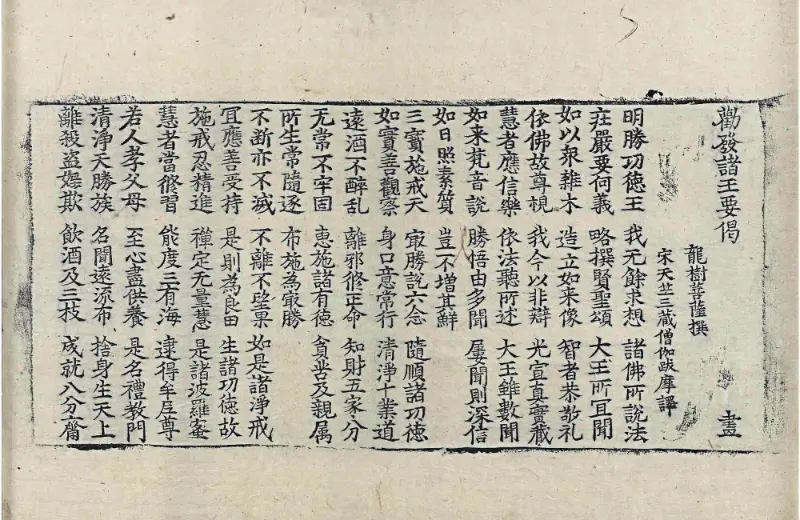 勸發諸王要偈 畫
龍樹菩薩撰
宋天竺三藏僧伽跋摩譯
明勝功德王 我无餘求想 諸佛所說法
庄嚴要何義 略撰賢聖頌 大王所宜聞
如以衆雜木 造立如来像 智者恭敬礼
依佛故尊視 我今以非辯 光宣真實藏
慧者應信樂 依法聽所述 大王雖數聞
如来梵音說 勝悟由多聞 屢聞則深信
如日照素質 豈不增其鮮
三寶施戒天 冣勝說六念 隨順諸功德
如實善觀察 身口意常行 清淨十業道
遠酒不醉乱 離邪修正命 知財五家分
无常不牢固 惠施諸有德 貧苦及親属
所生常隨逐 布施為冣勝
不断亦不減 不離不望果 如是諸淨戒
冝應善受持 是則為良田 生諸功德故
施戒忍精進 禪定无量慧 是諸波羅蜜
慧者當修習 能度三有海 逮得牟尼尊
若人孝父母 至心盡供養 是名禮教門
清淨天勝族 名聞遠流布 捨身生天上
離殺盗婬欺 飲酒及三枝 成就八分齋